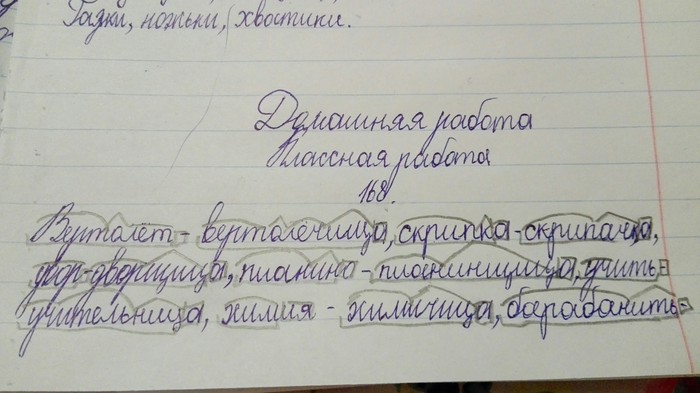 Глазки, ножки, хвостики.
Домашняя работа
Классная работа
168.
Вертолёт - вертолётчица, скрипка - скрипачка,
двор - дворщица, пианино - пианинщица, учить -
учительница, химия - химичица, барабанить -